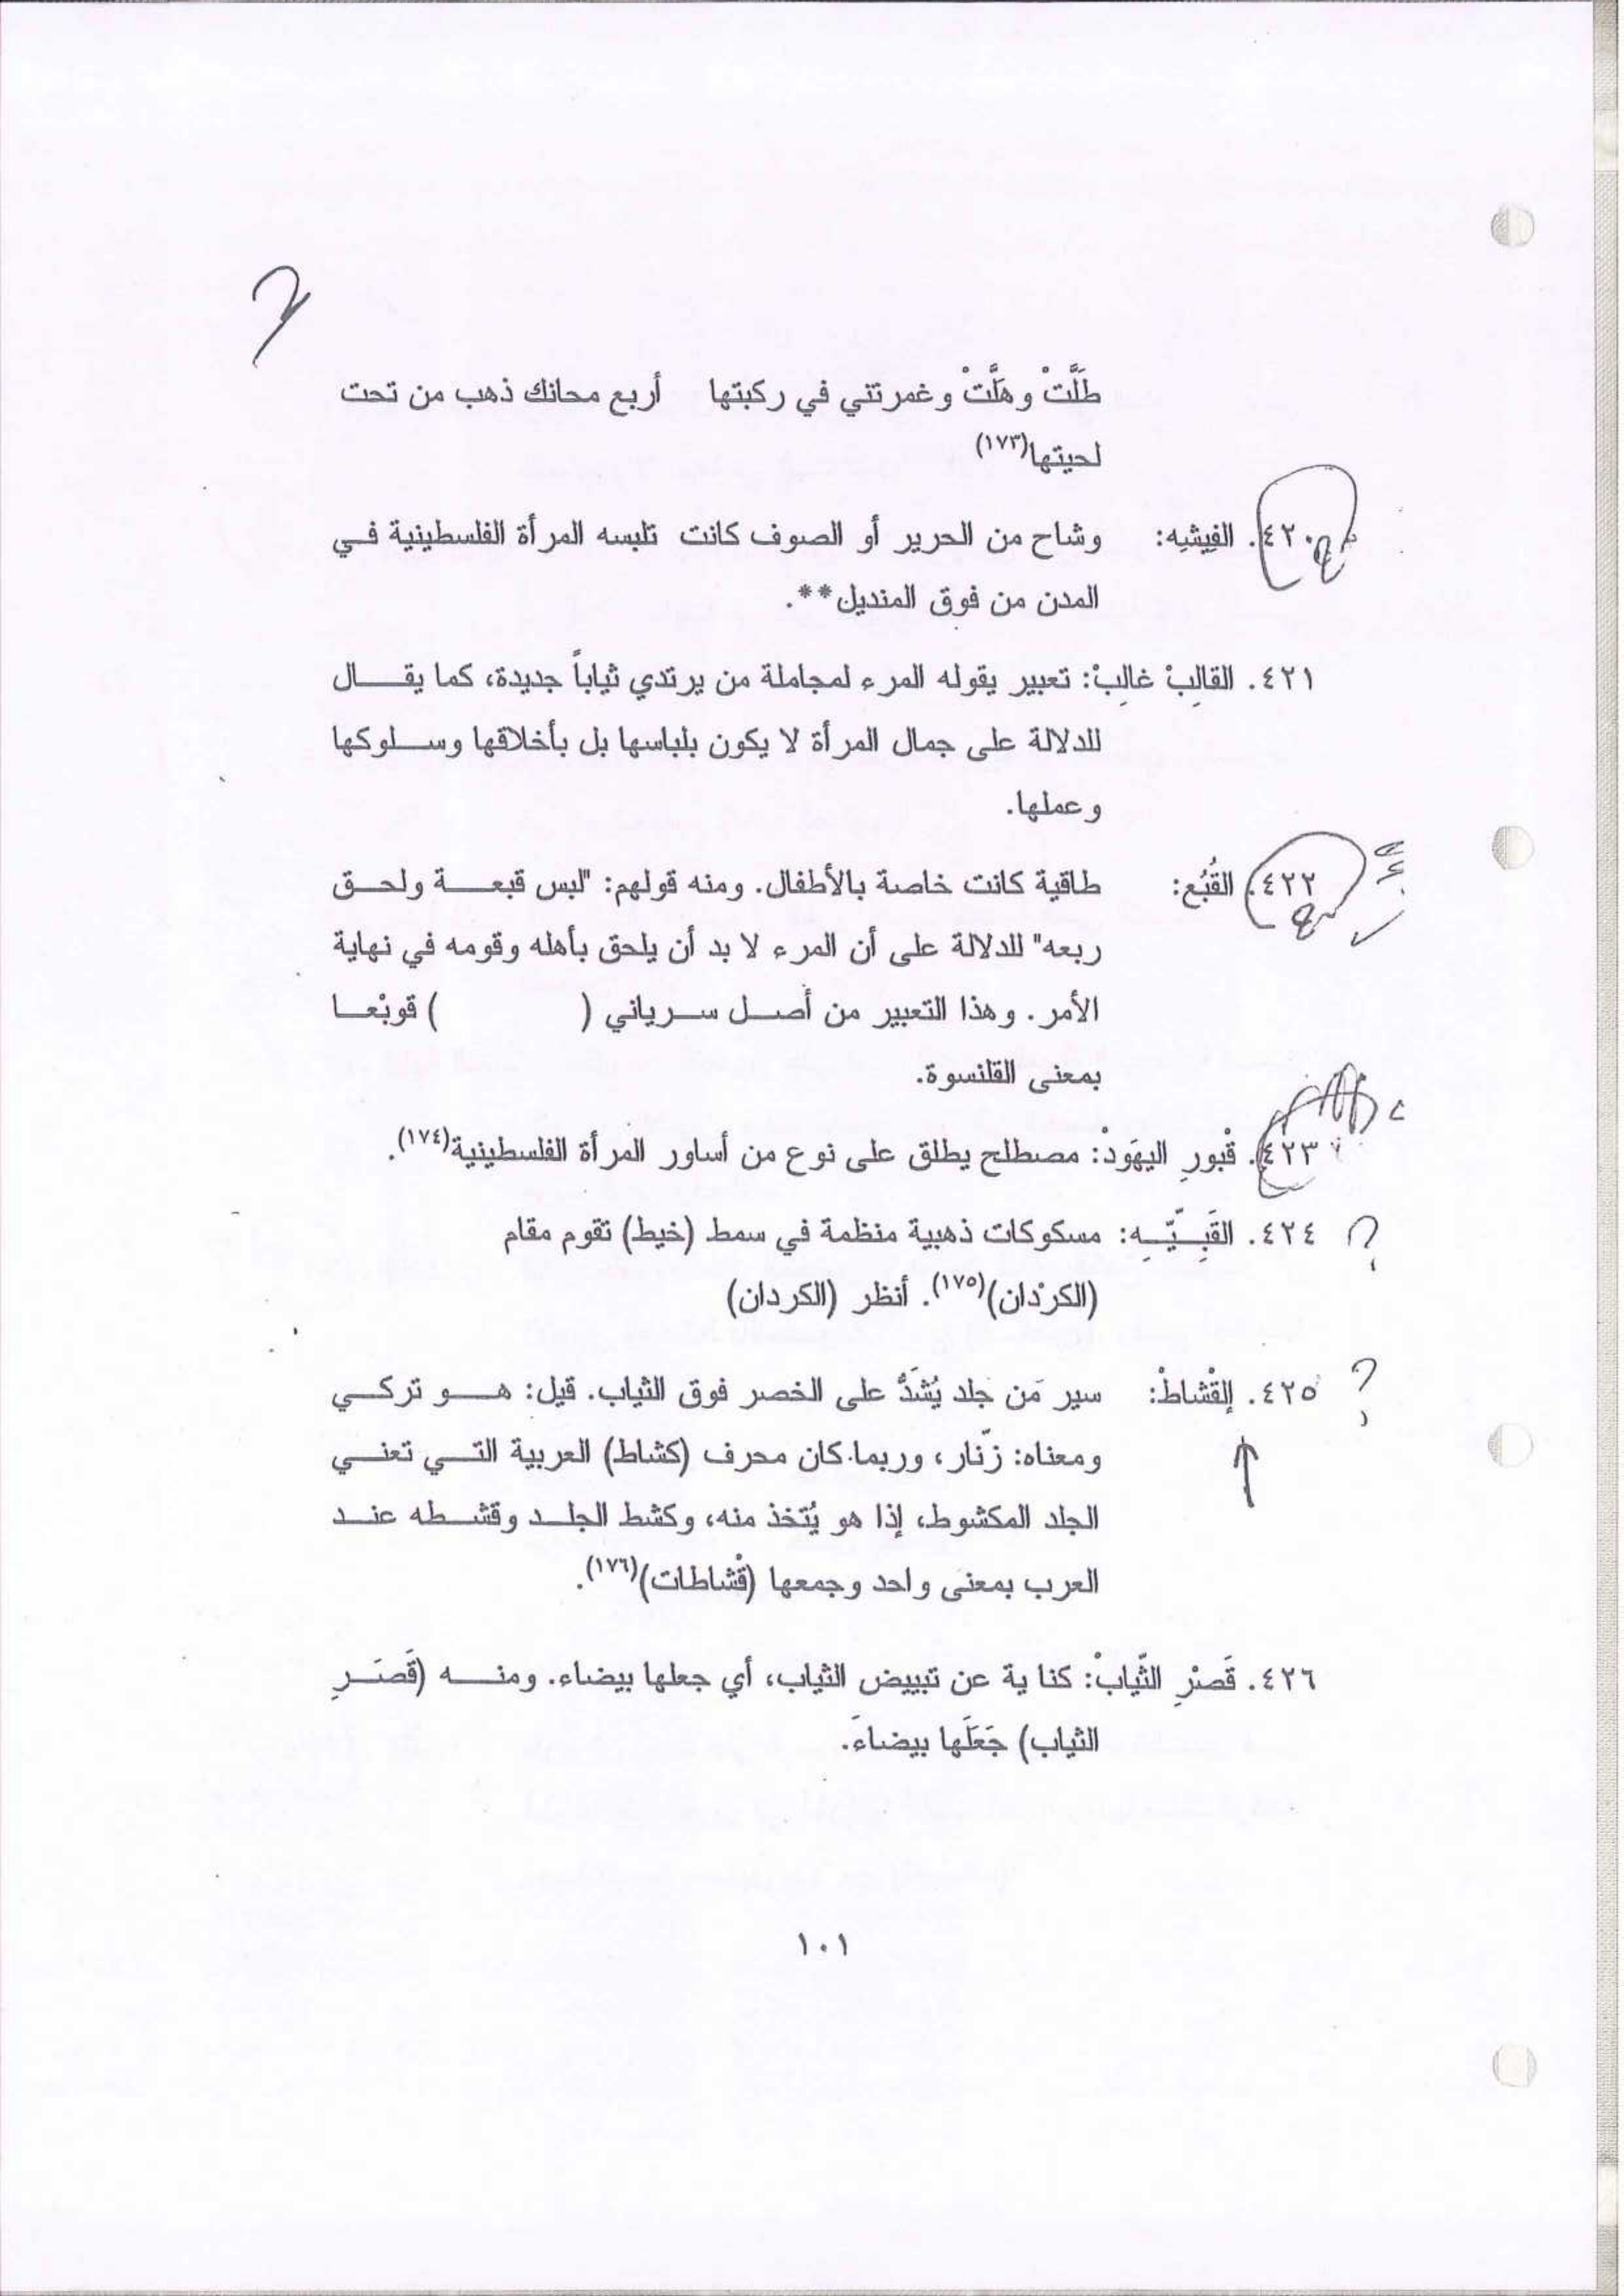 طَلَّتْ وهَلَّتْ وغمرتني في ركبتها أربع محانك ذهب من تحت
لحيتها(١٧٣)
٤٢٠. الفِيشِه: وشاح من الحرير أو الصوف كانت تلبسه المرأة الفلسطينية في
المدن من فوق المنديل**.
٤٢١. القالِبْ غالِبْ: تعبير يقوله المرء لمجاملة من يرتدي ثياباً جديدة، كما يقال
للدلالة على جمال المرأة لا يكون بلباسها بل بأخلاقها وسلوكها
وعملها.
٤٢٢. القُبُع: طاقية كانت خاصة بالأطفال. ومنه قولهم: "لبس قبعة ولحق
ربعه" للدلالة على أن المرء لا بد أن يلحق بأهله وقومه في نهاية
الأمر. وهذا التعبير من أصل سرياني ( ) قوبْعا
بمعنى القلنسوة.
٤٢٣. قْبورِ اليهَودْ: مصطلح يطلق على نوع من أساور المرأة الفلسطينية(١٧٤).
؟ ٤٢٤. القَبِيّـِه: مسكوكات ذهبية منظمة في سمط (خيط) تقوم مقام
(الكرْدان)(١٧٥). أنظر (الكردان)
؟ ٤٢٥. إلقْشاطْ: سير مَن جلد يُشَدُّ على الخصر فوق الثياب. قيل: هو تركي
ومعناه: زنّار، وربما كان محرف (كشاط) العربية التي تعني
الجلد المكشوط، إذا هو يُتخذ منه، وكشط الجلد وقشطه عند
العرب بمعنى واحد وجمعها (قْشاطات)(١٧٦).
٤٢٦. قَصْرِ الثّيابْ: كناية عن تبييض الثياب، أي جعلها بيضاء. ومنه (قَصَرِ
الثياب) جَعَلَها بيضاءَ.
١٠١